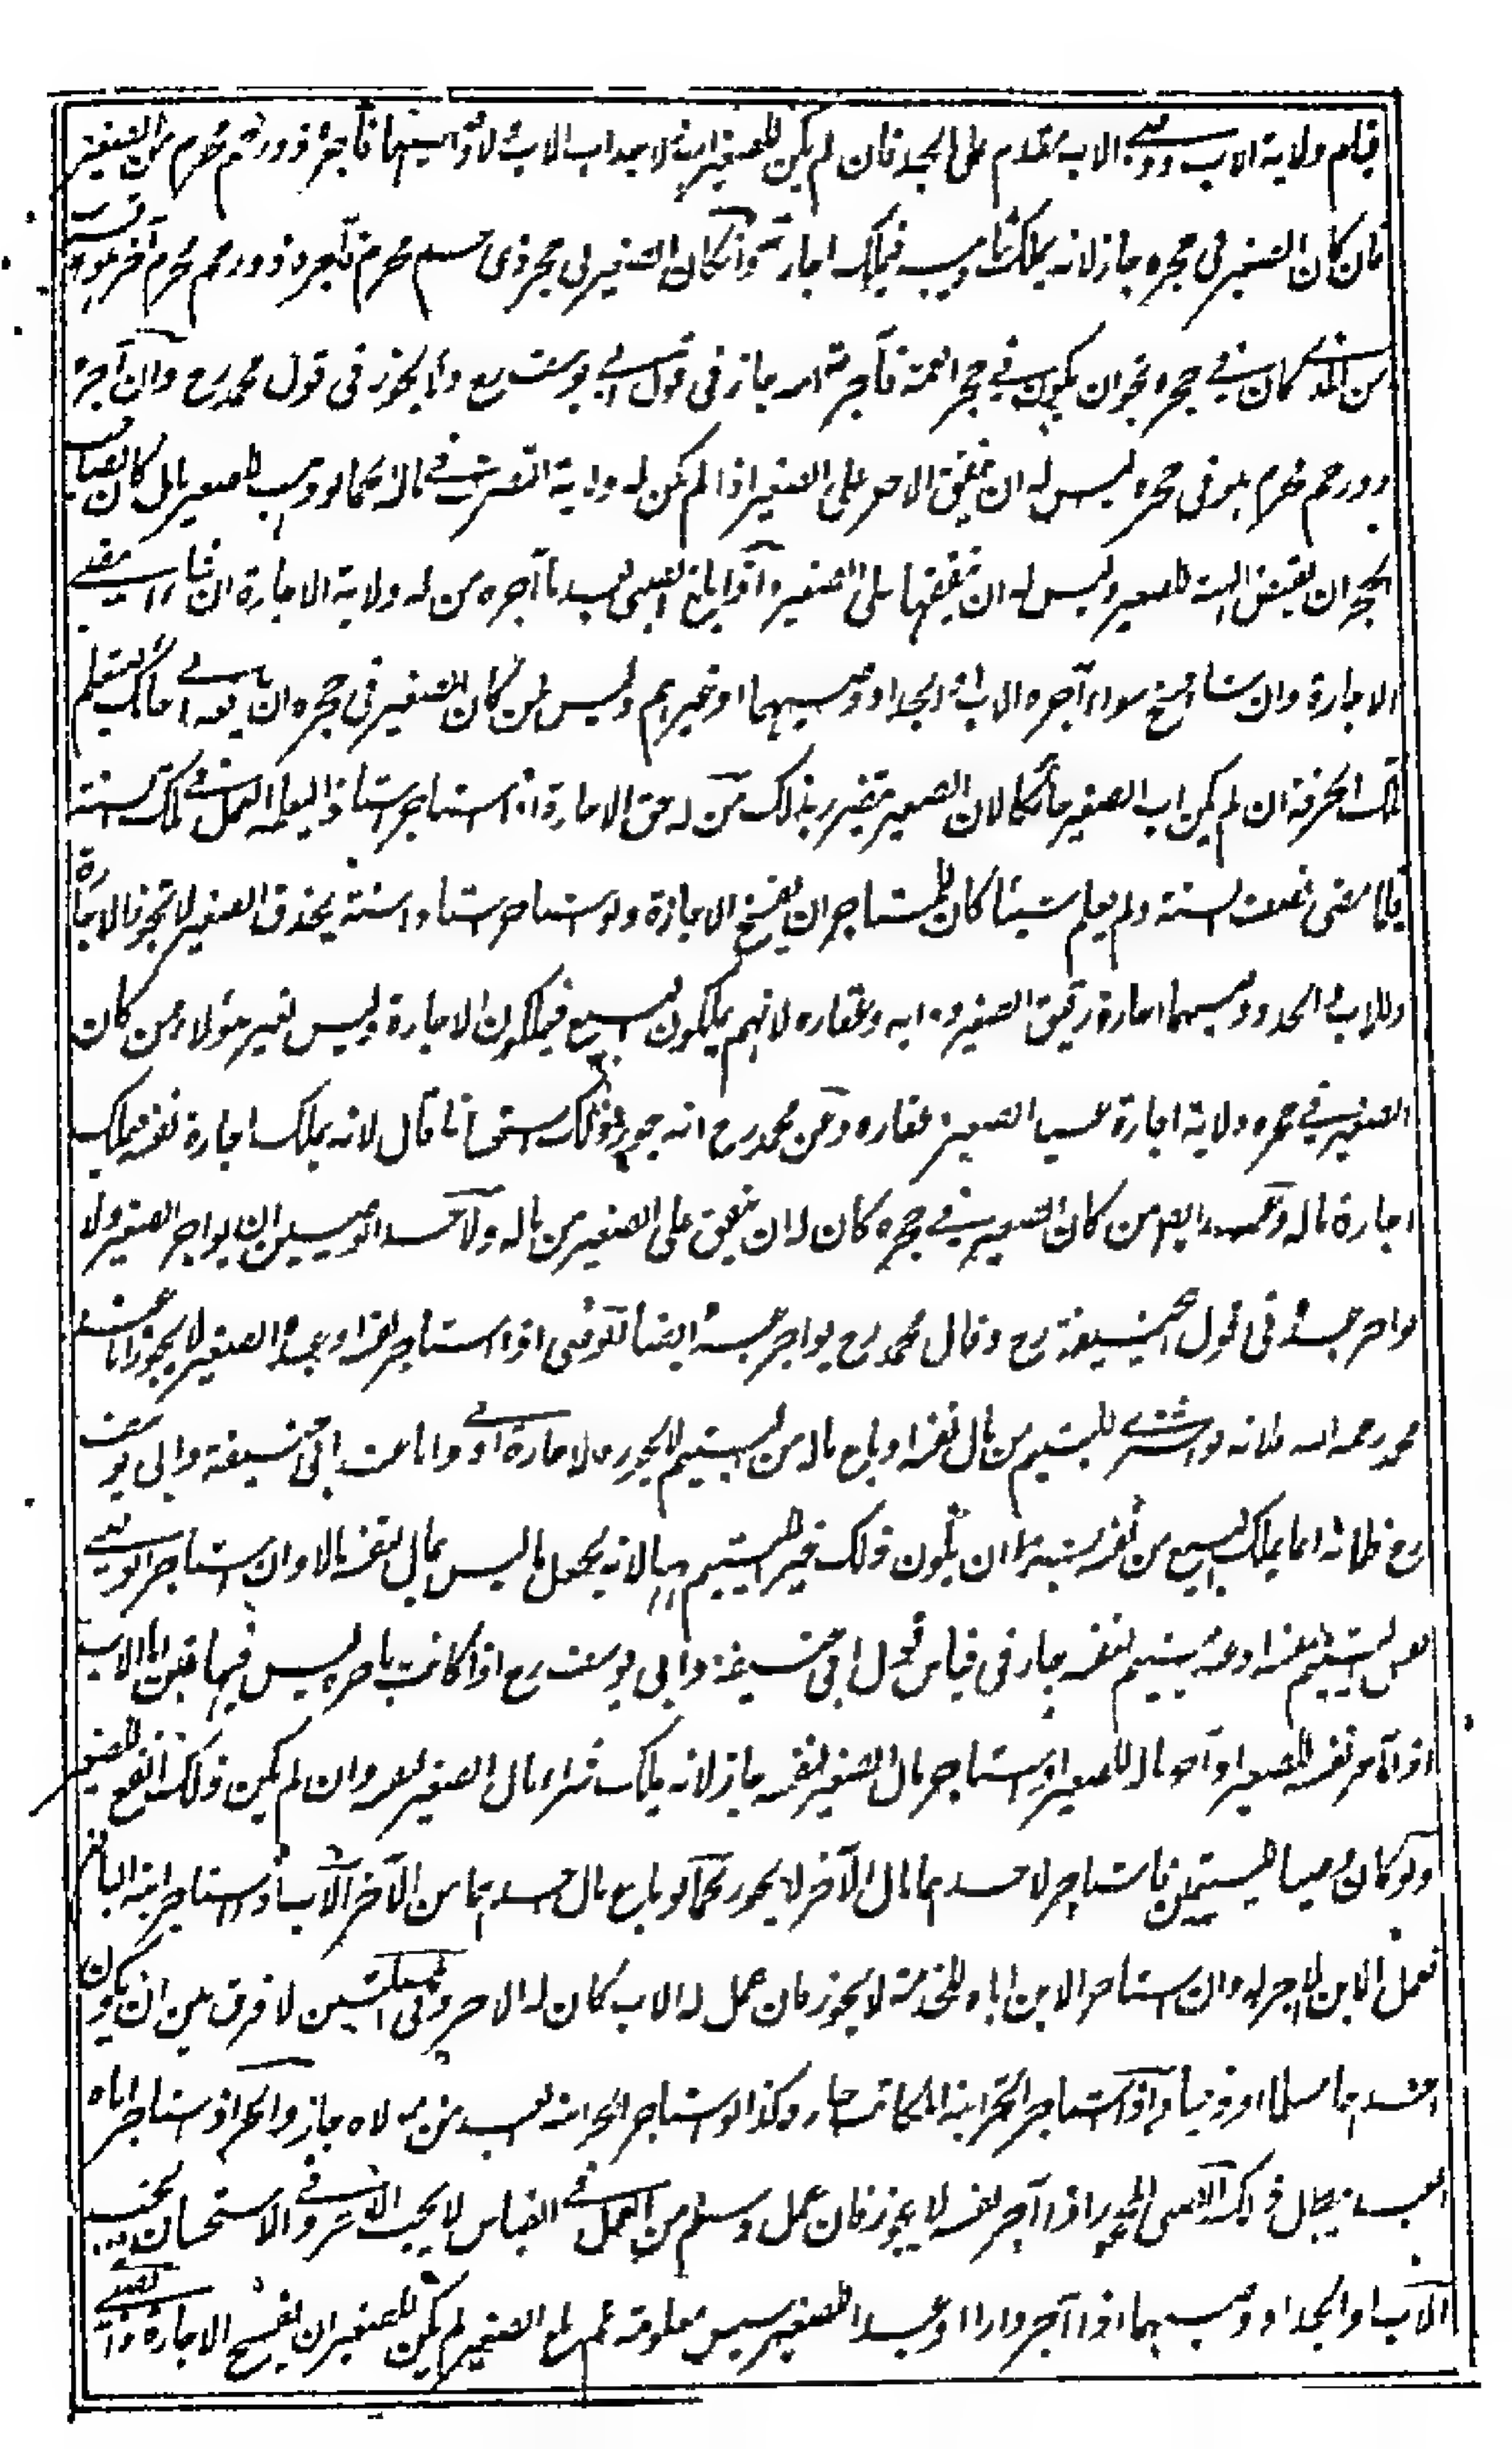 قيام ولاية الاب ووصي الاب مقدم على الجد فان لم يكن للصغير اب ولا جد اب الاب ولا وصيهما فآجره ذو رحم محرم من الصغير
فان كان الصغير في حجره جاز لانه يملك فيملك اجارته وان كان الصغير في حجر ذي رحم محرم فآجره ذو رحم محرم آخر هو اقرب
من الذي كان في حجره نحو ان يكون في حجر العمة فآجرته امه جاز في قول ابي يوسف رح ولا يجوز في قول محمد رح وان آجره
ذو رحم محرم هو في حجره ليس له ان ينفق الاجر على الصغير اذا لم يكن له ولاية التصرف في ماله كما لو وهب للصغير مال كان لصاحب
الحجر ان يقبض الهبة للصغير وليس له ان ينفقها على الصغير واذا بلغ الصبي بعد ما آجره من له ولاية الاجارة ان شاء مضى
الاجارة وان شاء فسخ سواء آجره الاب او الجد او وصيهما او غيرهم وليس لمن كان الصغير في حجره ان حائك ليتعلم
تلك الحرفة ان لم يكن اب الصغير حائكا لان الصغير يتضرر بذلك من له حق الاجارة اذا استاجر استاذا ليعلمه العمل في تلك السنة
فلما مضى نصف السنة ولم يعلم شيئا كان للمستاجر ان يفسخ الاجارة ولو استاجر استاذا سنة يحذق الصغير لا تجوز الاجارة
وللاب والجد ووصيهما اجارة رقيق الصغير ودوابه وعقاره لانهم يملكون البيع فيملكون الاجارة وليس لغير هؤلاء ومن كان
الصغير في حجره ولاية اجارة عبد الصغير وعقاره وعن محمد رح انه جوز ذلك استحسانا قال لانه يملك اجارة نفسه فيملك
اجارة ماله وعنه ايضا من كان الصغير في حجره كان له ان ينفق على الصغير من ماله ولاحد الوصيين ان يواجر الصغير ولا
يواجر عبده في قول ابي حنيفة رح وقال محمد رح يواجر عبده ايضا الوصي اذا استاجر نفسه او عبده للصغير لا يجوز اما عند
محمد رحمه الله فلانه لو اشترى لليتيم من مال نفسه او باع مال من اليتيم لا يجوز فالاجارة اولى واما عند ابي حنيفة وابي يوسف
رح فلانه انما يملك البيع من نفسه بشرط ان يكون ذلك خير لليتيم لانه يجعل ما ليس بمال لنفسه مالا وان استاجر الوصي
نفس اليتيم لنفسه او عبد يتيم لنفسه جاز في قياس قول ابي حنيفة وابي يوسف رح اذا كانت باجرة ليس فيها غبن اما الاب
اذا آجر نفسه للصغير او آجر ماله للصغير او استاجر مال الصغير لنفسه جاز لانه يملك شراء مال الصغير لنفسه وان لم يكن ذلك انفع للصغير
ولو كان وصيا ليتيمين فاستاجر لاحدهما مال الآخر لا يجوز كما لو باع مال احدهما من الآخر الاب اذا استاجر ابنه البالغ
فعمل الابن لا اجر له وان استاجر الابن اباه للخدمة لا يجوز فان عمل له الاب كان له الاجر وفي المسئلتين لا فرق بين ان يكون
احدهما مسلما او ذميا واذا استاجر الحر ابنه المكاتب جاز وكذا لو استاجر الحر ابنه لعبد من مولاه جاز والحر اذا استاجر اباه
العبد يبطل ذلك الصبي المحجور اذا آجر نفسه لا يجوز فان عمل وسلم من العمل في القياس لا يجب الاجر وفي الاستحسان يجب
الاب او الجد او وصيهما اذا آجر دارا او عبدا للصغير سنين معلومة ثم بلغ الصغير لم يكن للصغير ان يفسخ الاجارة